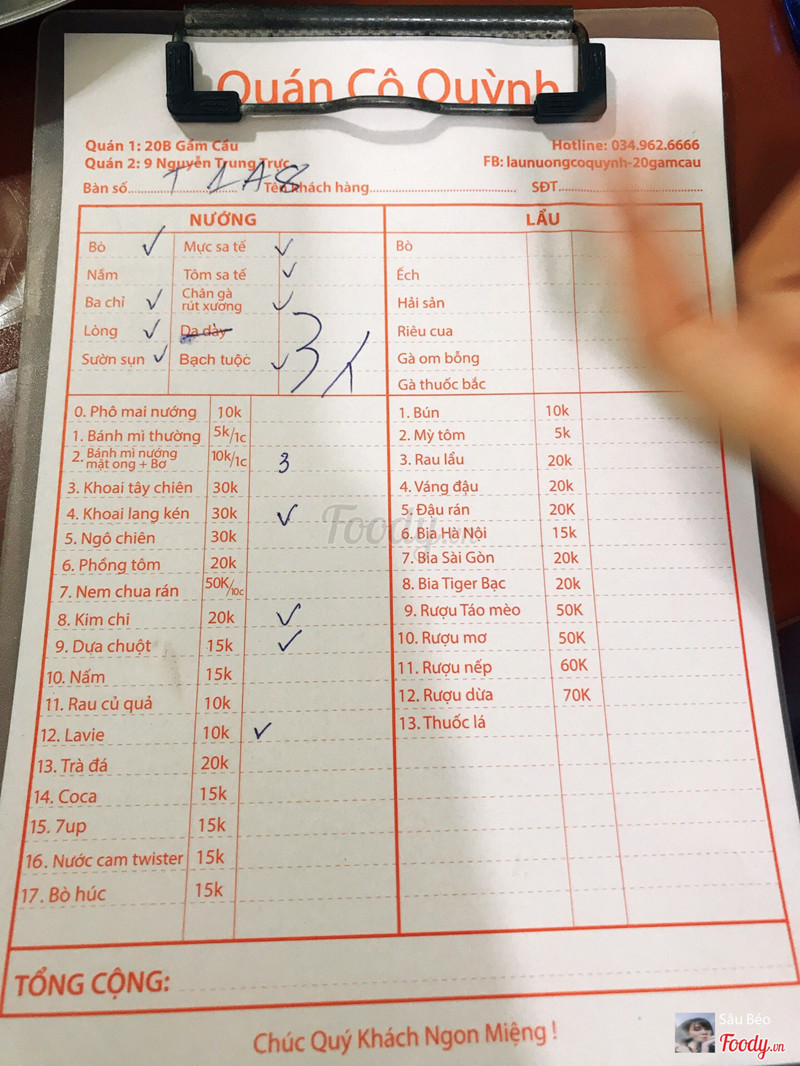 Quán Cô Quỳnh
Quán 1: 20B Gầm Cầu
Hotline: 034.962.6666
Quán 2: 9 Nguyễn Trung Trực
FB: launuongcoquynh-20gamcau
Bàn số T 1A8 Tên khách hàng SĐT
NƯỚNG LẨU
Bò ✓ Mực sa tế ✓ Bò
Nầm Tôm sa tế ✓ Ếch
Ba chỉ ✓ Chân gà rút xương ✓ Hải sản
Lòng ✓ Dạ dày Riêu cua
Sườn sụn ✓ Bạch tuộc ✓ 3 Gà om bỗng
Gà thuốc bắc
0. Phô mai nướng 10k
1. Bánh mì thường 5k/1c
2. Bánh mì nướng mật ong + Bơ 10k/1c 3
3. Khoai tây chiên 30k
4. Khoai lang kén 30k ✓
5. Ngô chiên 30k
6. Phồng tôm 20k
7. Nem chua rán 50K/10c
8. Kim chi 20k ✓
9. Dưa chuột 15k ✓
10. Nấm 15k
11. Rau củ quả 10k
12. Lavie 10k ✓
13. Trà đá 20k
14. Coca 15k
15. 7up 15k
16. Nước cam twister 15k
17. Bò húc 15k
1. Bún 10k
2. Mỳ tôm 5k
3. Rau lẩu 20k
4. Váng đậu 20k
5. Đậu rán 20K
6. Bia Hà Nội 15k
7. Bia Sài Gòn 20k
8. Bia Tiger Bạc 20k
9. Rượu Táo mèo 50K
10. Rượu mơ 50K
11. Rượu nếp 60K
12. Rượu dừa 70K
13. Thuốc lá
TỔNG CỘNG:
Chúc Quý Khách Ngon Miệng !
Foody.vn
Sâu Béo
Foody.vn